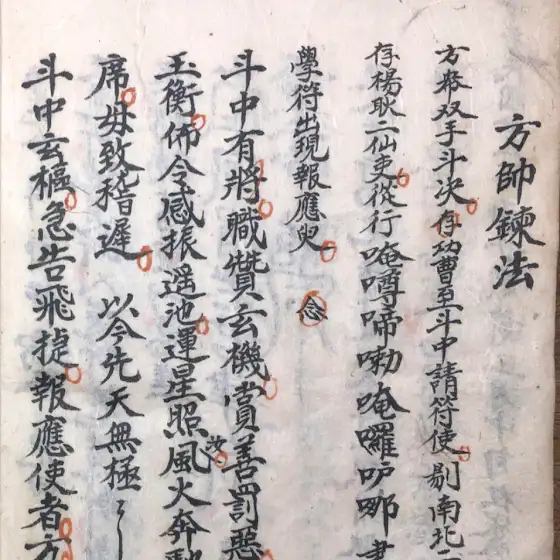 方帥鍊法
方答双手斗决存功曹至斗中請符使剔南北
存楊耿二仙吏從行唵噂啼嘞唵囉吵哪
學符出現報應兒 念
斗中有將職贊玄機賞善罰惡
玉衡佈令感振遥池運星照風火奔
席毋致稽遲 以今先天無極
斗中玄樞急告飛捷報應使者方